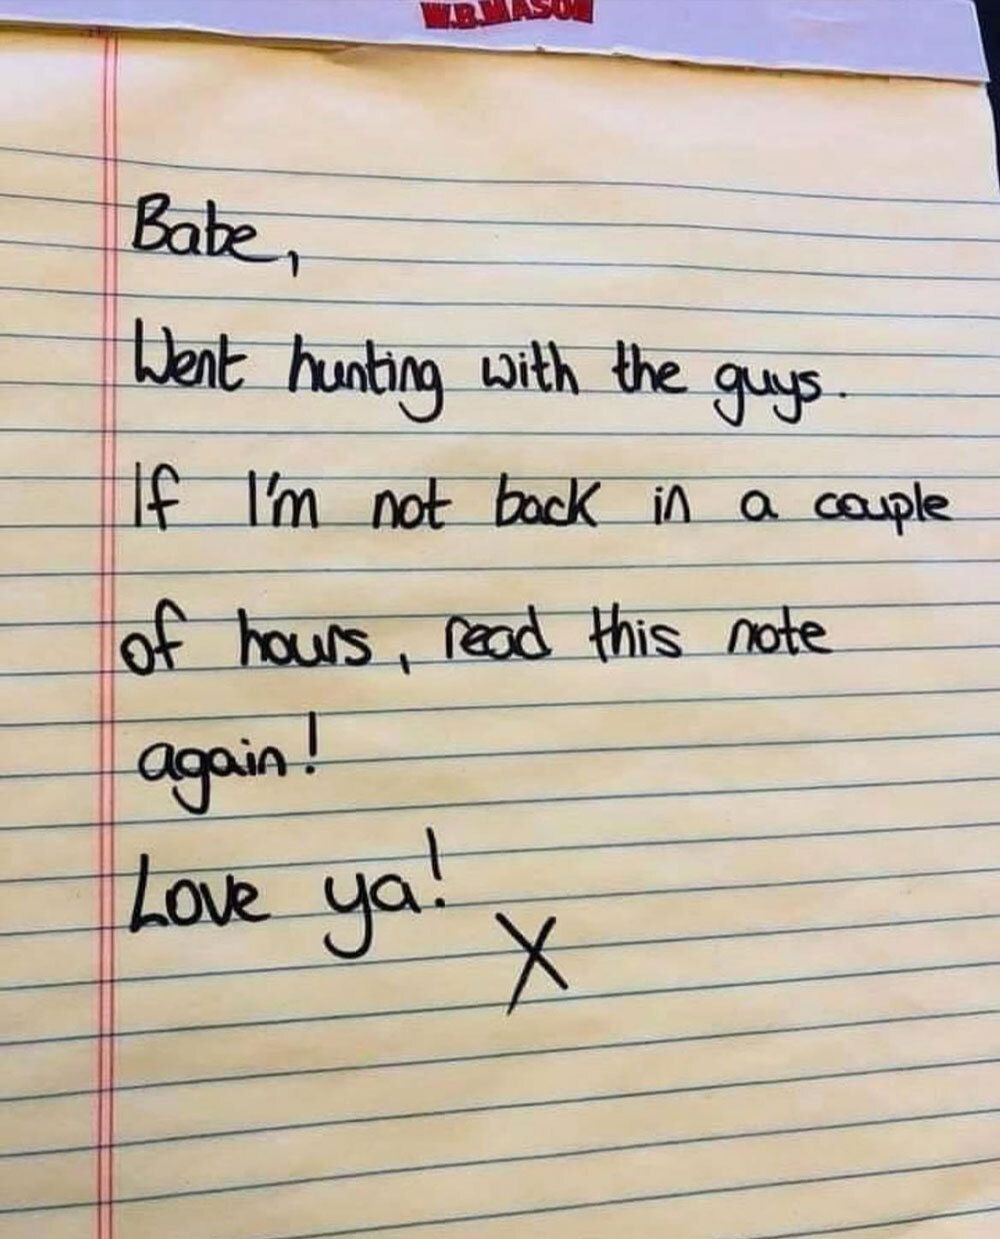 W.B.MASON
Babe,
Went hunting with the guys.
If I'm not back in a couple
of hours, read this note
again!
Love ya!
X